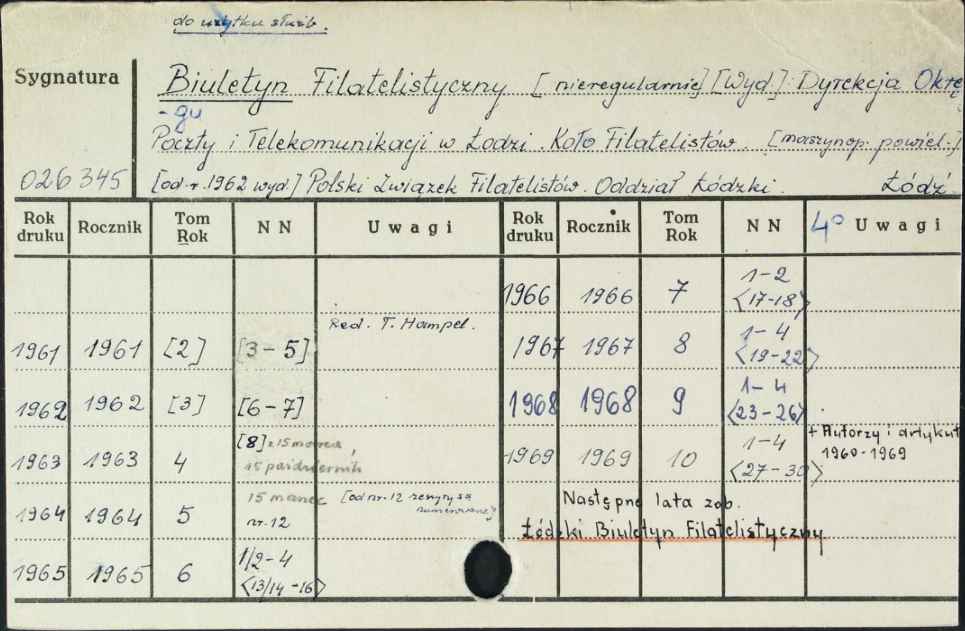 do użytku służb.
Sygnatura
Biuletyn Filatelistyczny [nieregularnie] [Wyd.]: Dyrekcja Okrę
-gu
Poczty i Telekomunikacji w Łodzi. Koło Filatelistów. [maszynop. powiel.]
026345 [od r. 1962 wyd.] Polski Związek Filatelistów. Oddział Łódzki. Łódź.
Rok druku Rocznik Tom Rok NN Uwagi Rok druku Rocznik Tom Rok NN 4° Uwagi
1966 1966 7 1-2 <17-18>
Red. T. Hampel.
1961 1961 [2] [3-5] 1967 1967 8 1-4 <19-22>
1962 1962 [3] [6-7] 1968 1968 9 1-4 <23-26>
1963 1963 4 [8] z 15 marca, 15 październik 1969 1969 10 1-4 <27-30> + Autorzy i artykuł 1960-1969
1964 1964 5 15 marzec nr. 12 [od nr. 12 zeszyty są numerowane] Następne lata zob.
Łódzki Biuletyn Filatelistyczny
1965 1965 6 1/2-4 <13/14-16>